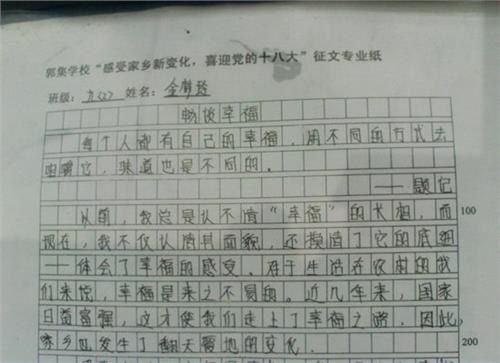 郭集学校“感受家乡新变化，喜迎党的十八大”征文专业纸
班级：九(2) 姓名：金梦玲
畅谈幸福
每个人都有自己的幸福，用不同的方式去
咀嚼它，味道也是不同的。
——题记
从前，我总是认不清“幸福”的长相，而
现在，我不仅认清其面貌，还摸清了它的底细
——体会了幸福的感受。对于生活在农村的我
们来说，幸福是来之不易的。近几年来，国家
日益富强，这才使我们走上了幸福之路，因此
家乡也发生了翻天覆地的变化。
100
200